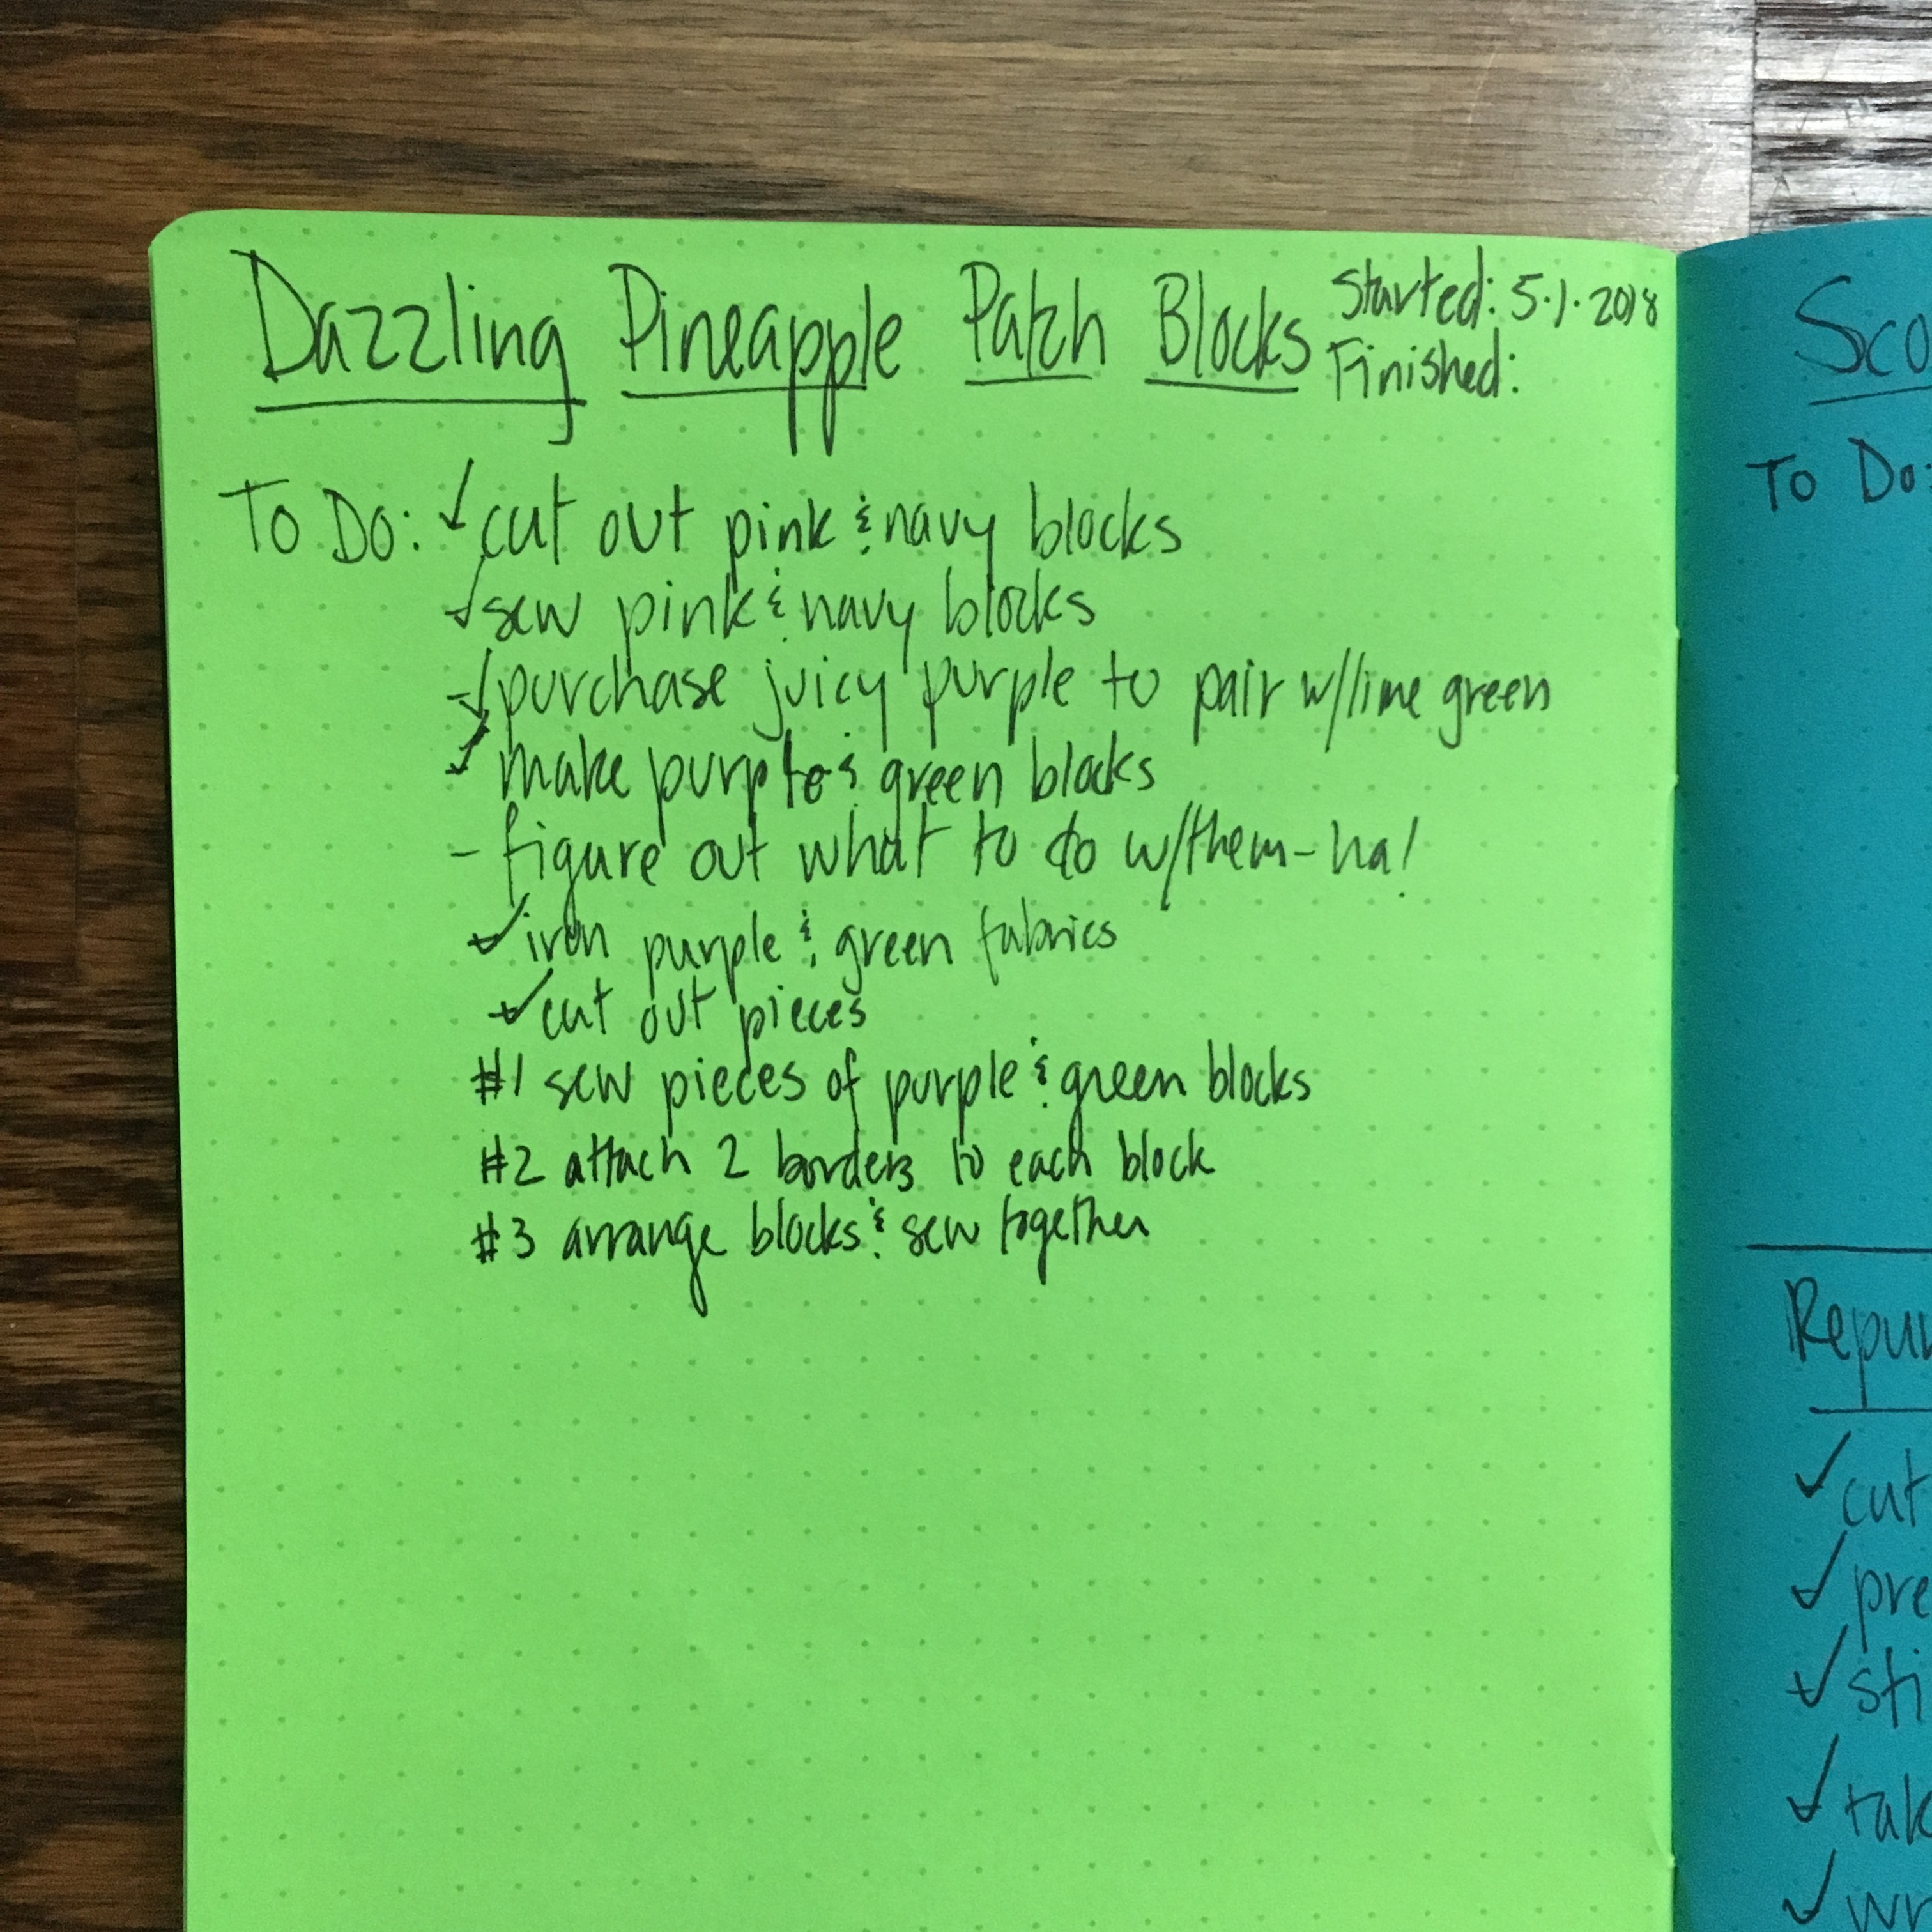 Dazzling Pineapple Patch Blocks
Started: 5.1.2018
Finished:
To Do: ✓cut out pink & navy blocks
✓sew pink & navy blocks
-✓purchase juicy purple to pair w/lime green
✓make purple & green blocks
- figure out what to do w/them - ha!
✓iron purple & green fabrics
✓cut out pieces
#1 sew pieces of purple & green blocks
#2 attach 2 borders to each block
#3 arrange blocks & sew together
Sco
To Do:
Repur
✓cut
✓pre
✓sti
✓tak
✓wr